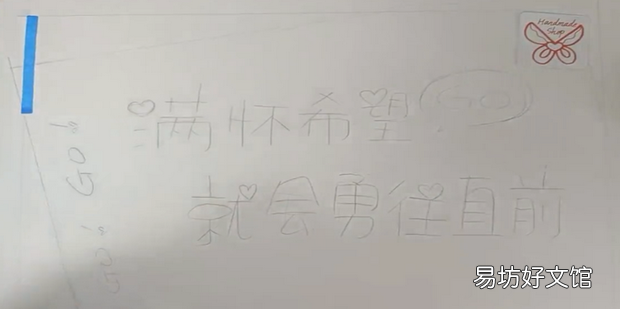 Handmade
Shop
满怀希望 GO
就会勇往直前
GO!
GO!
易坊好文馆